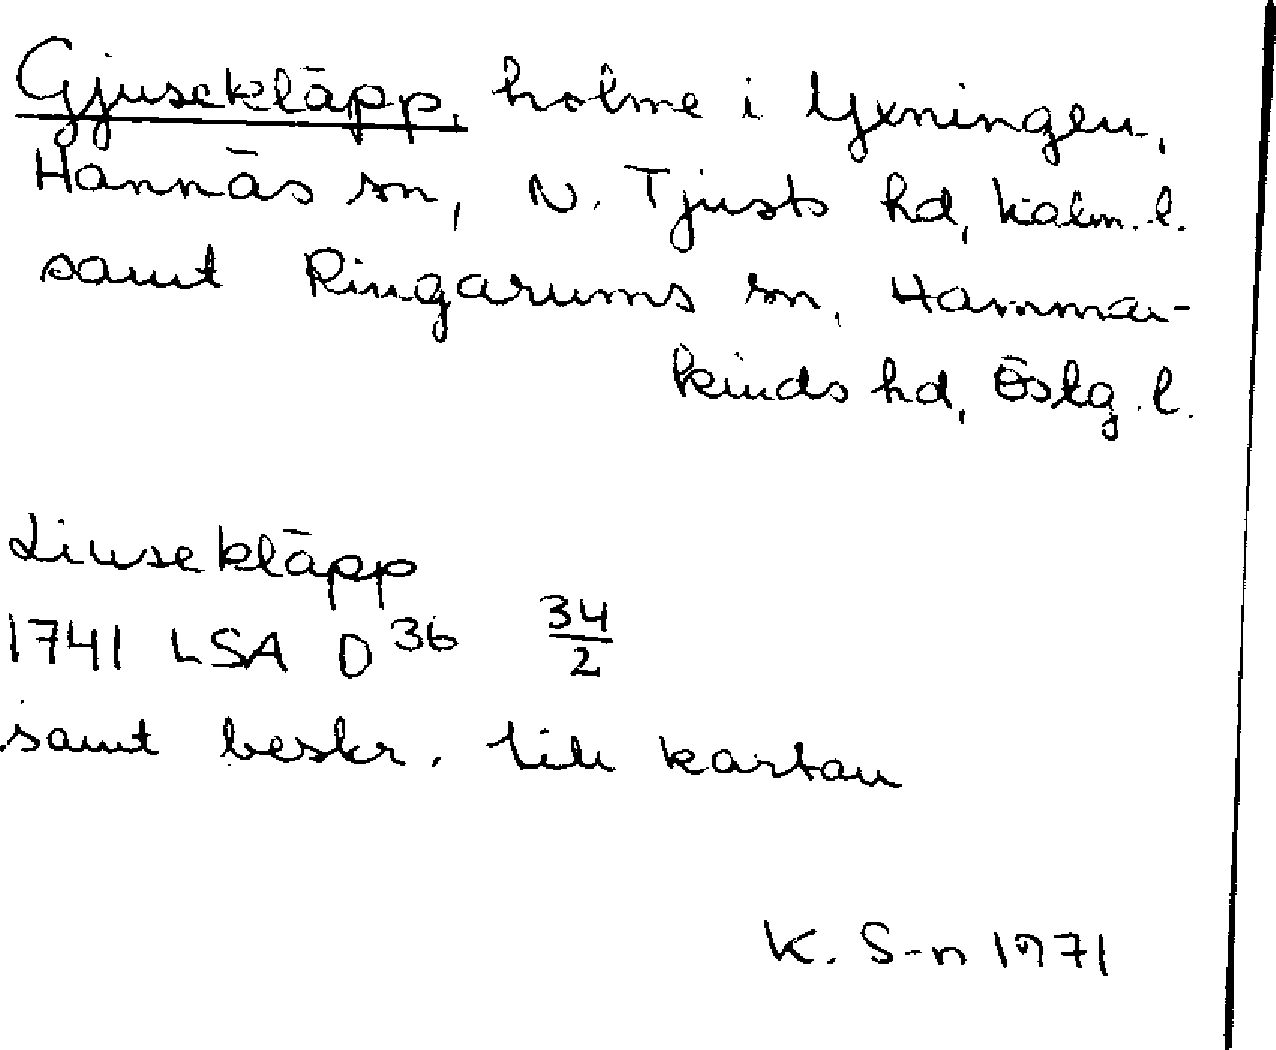 Gjusekläpp, holme i Yxningen,
Hannäs sn, N. Tjusts hd, Kalm. l.
samt Ringarums sn, Hammar-
kinds hd, Östg. l.
Liusekläpp
1741 LSA D36 34/2
samt beskr. till kartan
K. S-n 1971